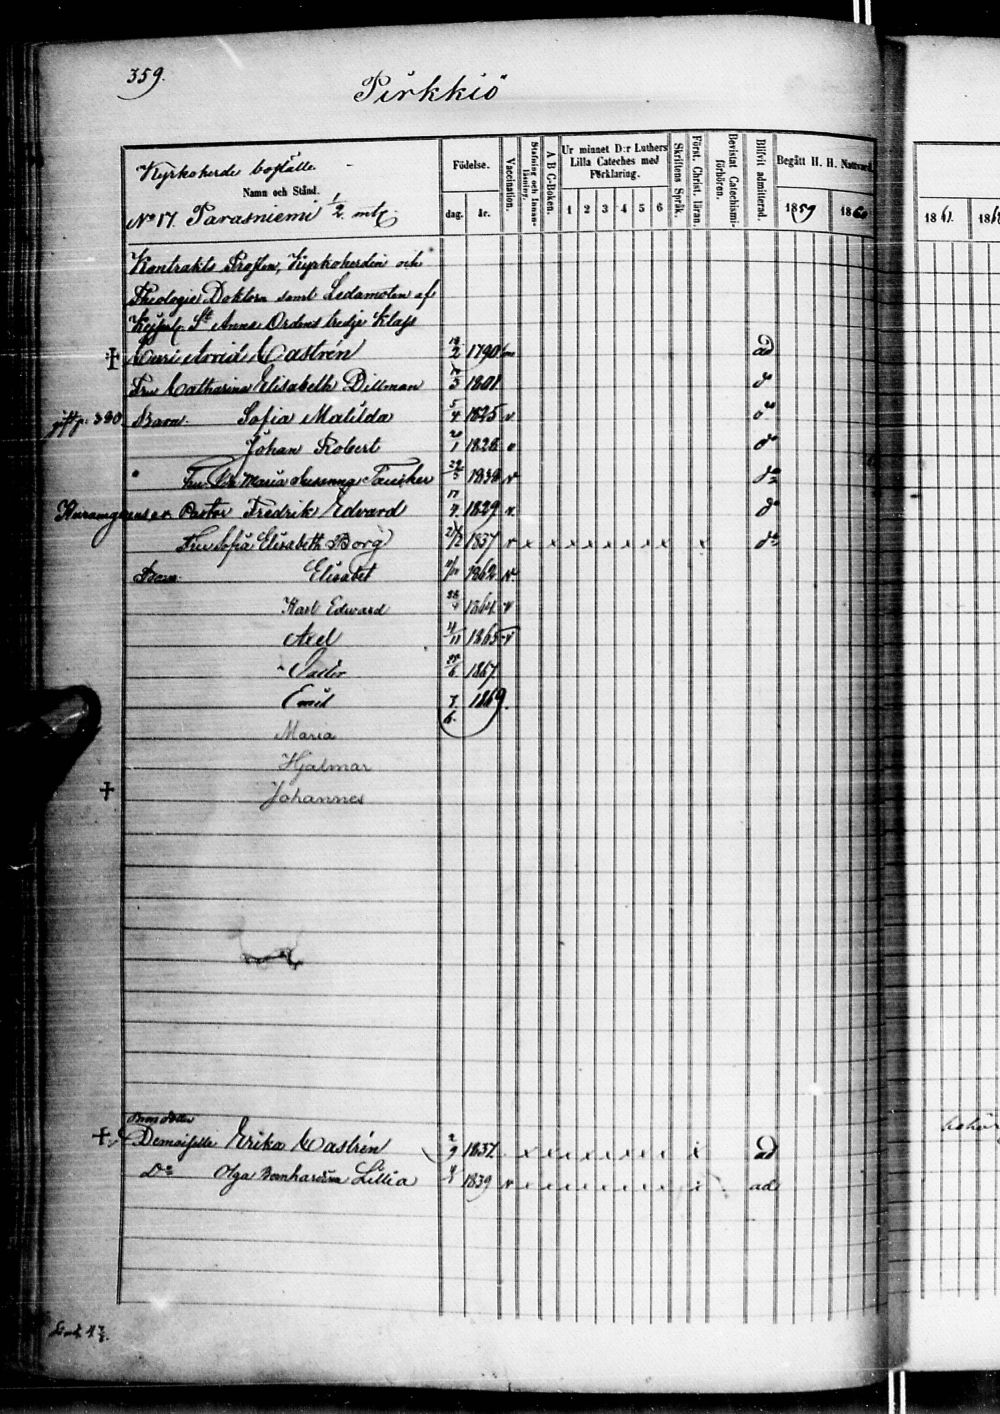 359.
Pirkkiö
Kyrkoherde boställe
Namn och Stånd.
No 17. Parasniemi 1/2 mtl.
Födelse.
dag. år.
Vaccination.
Stafning och Innanläsning.
A B C-Boken.
Ur minnet D:r Luthers Lilla Cateches med Förklaring.
1 2 3 4 5 6
Skriftens Språk.
Först. Christ. läran.
Bevistat Catechismiförhören.
Blifvit admitterad.
Begått H. H. Nattvard
1859 1860
1861.
Kontrakts Prosten, Kyrkoherden och
Theologie Doktorn samt Ledamoten af
Kejserl. St Anna Ordens tredje Klass
† Arvid Castrén 1790 ad
Fru Catharina Elisabeth Dillman 1801
gift p. 320 Barn. Sofia Matilda 5/4 1825 v
Johan Robert 20/1 1828
Fru Maria Tauscher 1838 v
Pastor Fredrik Edvard 17/9 1829 v
Fru Sofia Elisabeth Borg 1837 v x x x x x x x x x
Barn. Elisabet 1862 v
Karl Edward 1864 v
Axel 4/11 1865 v
1867
Emil 7/6. 1869.
Maria
Hjalmar
† Johannes
† Demoiselle Erika Castrén 2/9 1837 x x x x x x x x x ad
Do Olga Lillia 1839 v x x x x x x x x x ad